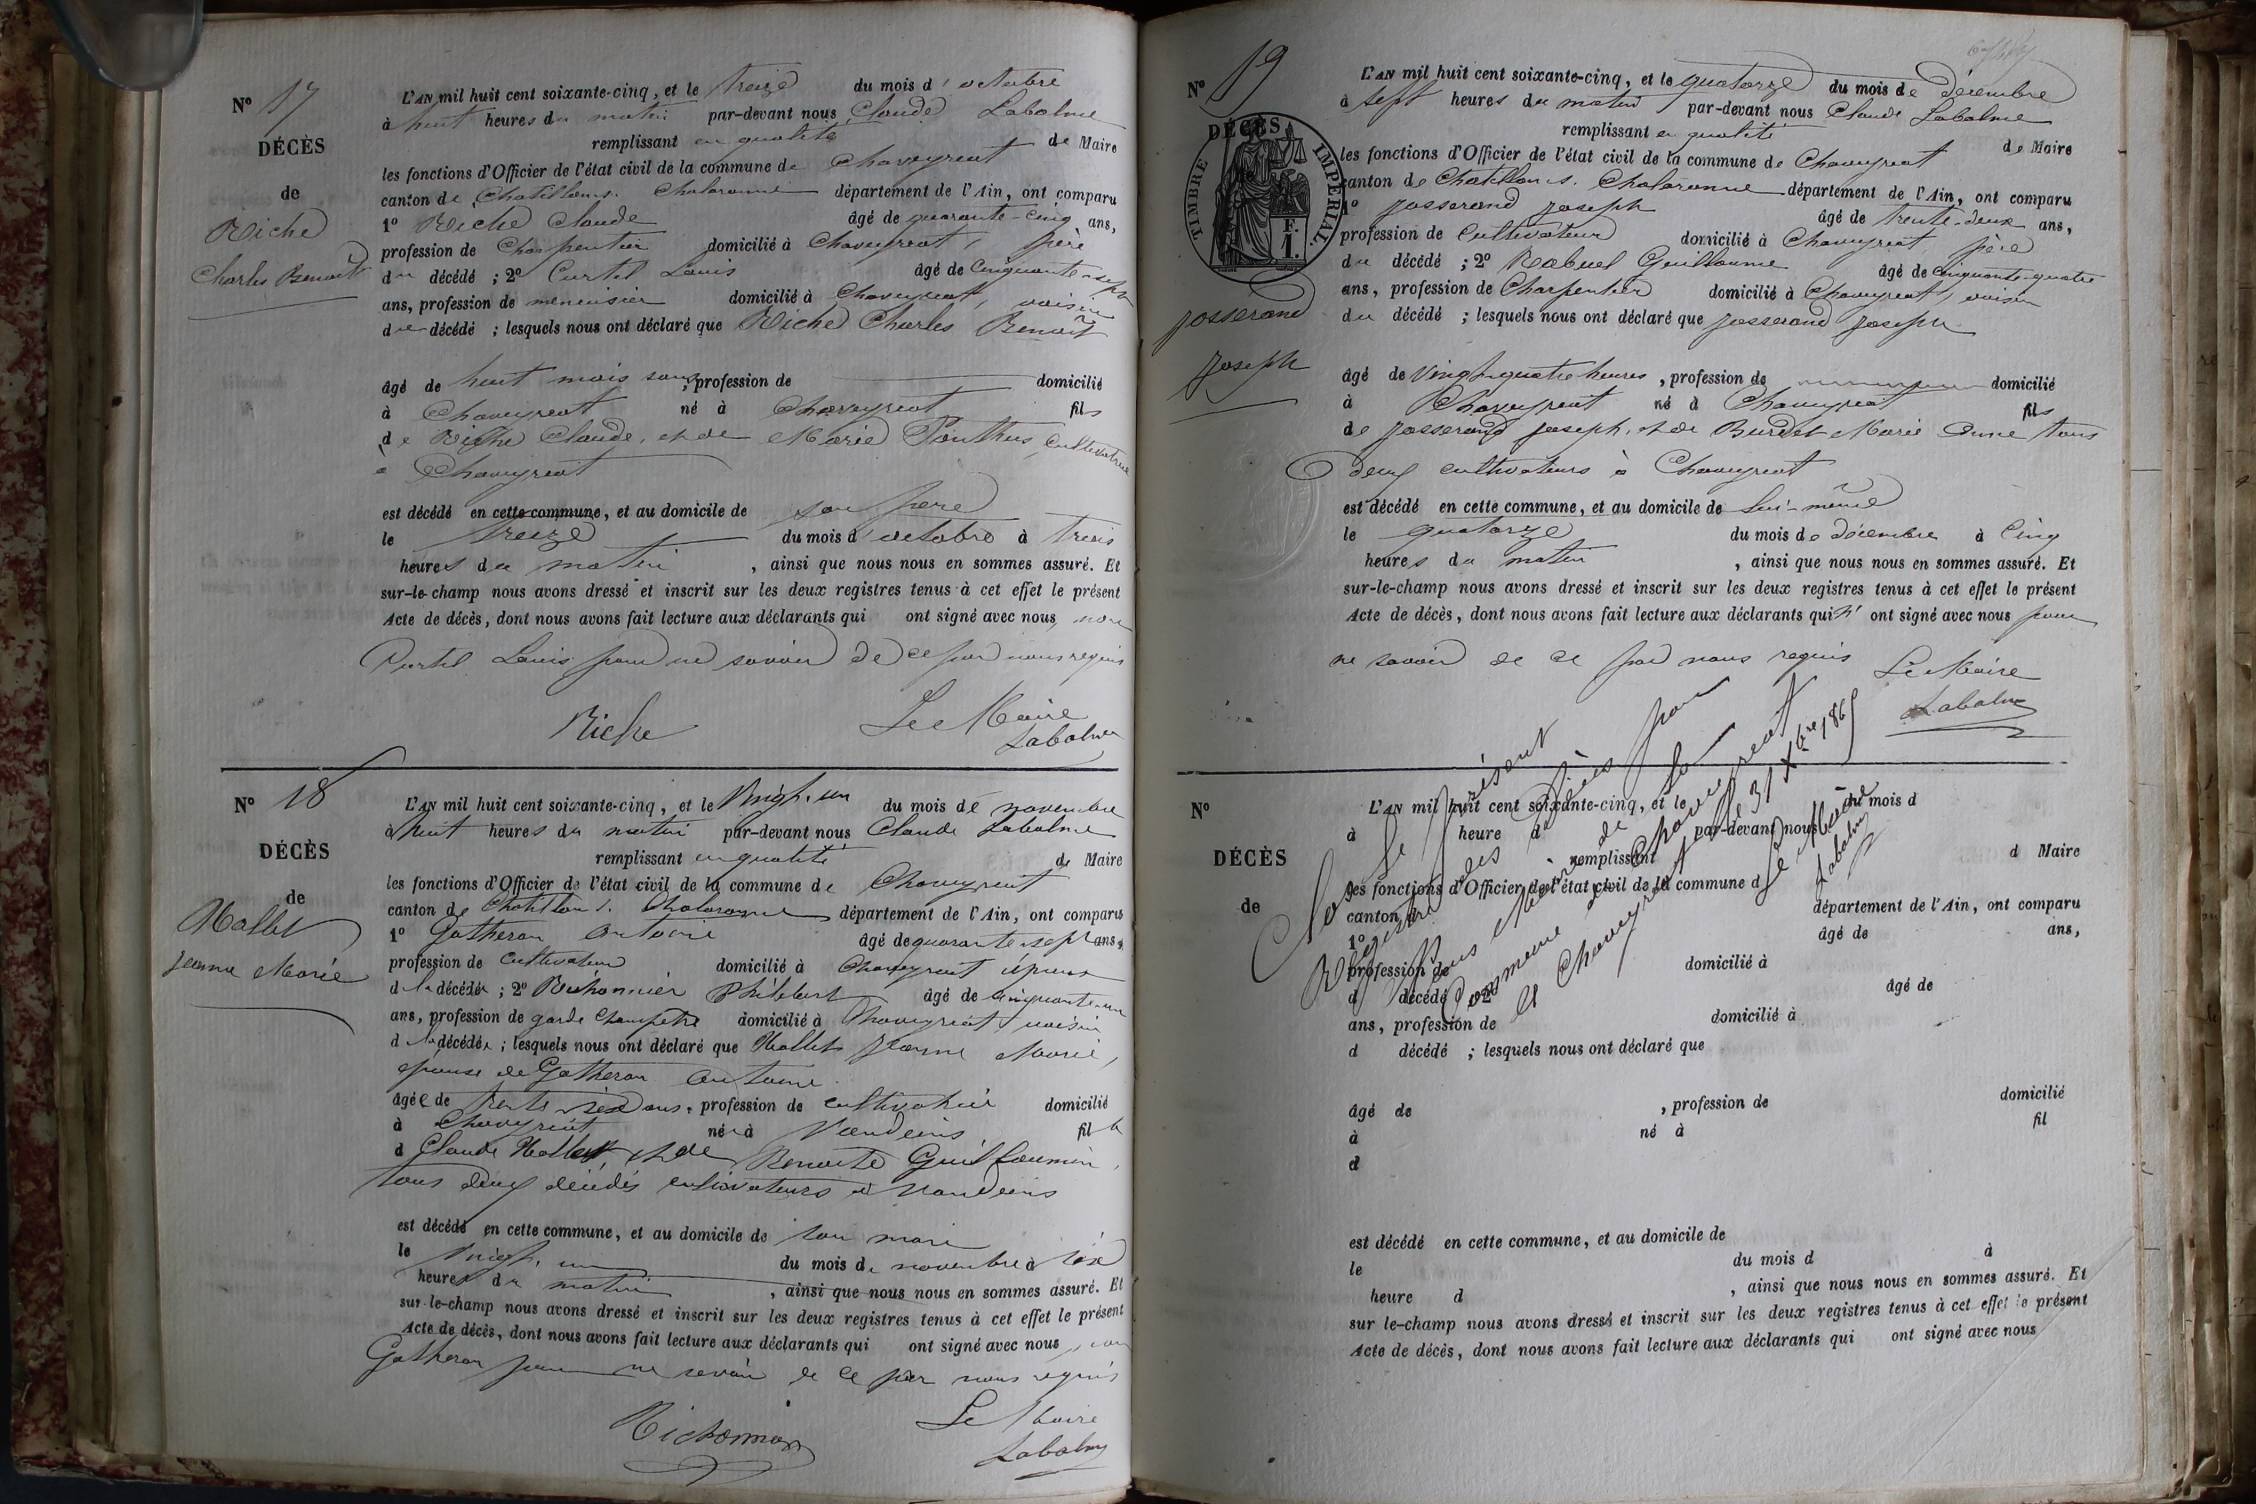 N° 17
DÉCÈS
de
Riche
Charles Benoit
L'AN mil huit cent soixante-cinq, et le treize du mois d'octobre
à huit heures du matin par-devant nous Claude Labalme
remplissant en qualité de Maire
les fonctions d'Officier de l'état civil de la commune de Chaveyriat
canton de Chatillon s. Chalaronne département de l'Ain, ont comparu
1° Riche Claude âgé de quarante-cinq ans,
profession de Charpentier domicilié à Chaveyriat, père
du décédé ; 2° Curtil Louis âgé de cinquante-sept
ans, profession de menuisier domicilié à Chaveyriat, voisin
du décédé ; lesquels nous ont déclaré que Riche Charles Benoit
âgé de huit mois sans, profession de domicilié
à Chaveyriat né à Chaveyriat fils
de Riche Claude, et de Marie Ponthus, cultivatrice
à Chaveyriat
est décédé en cette commune, et au domicile de son père
le treize du mois d'octobre à trois
heures du matin, ainsi que nous nous en sommes assuré. Et
sur-le-champ nous avons dressé et inscrit sur les deux registres tenus à cet effet le présent
Acte de décès, dont nous avons fait lecture aux déclarants qui ont signé avec nous, non
Curtil Louis pour ne savoir de ce par nous requis
Riche Le Maire
Labalme
N° 18
DÉCÈS
de
Mallet
Jeanne Marie
L'AN mil huit cent soixante-cinq, et le Vingt-un du mois de novembre
à huit heures du matin par-devant nous Claude Labalme
remplissant en qualité de Maire
les fonctions d'Officier de l'état civil de la commune de Chaveyriat
canton de Chatillon s. Chalaronne département de l'Ain, ont comparu
1° Gatheron Antoine âgé de quarante-sept ans,
profession de cultivateur domicilié à Chaveyriat époux
de la décédée ; 2° Richonnier Philibert âgé de cinquante-un
ans, profession de garde champêtre domicilié à Chaveyriat, voisin
de la décédée ; lesquels nous ont déclaré que Mallet Jeanne Marie,
épouse de Gatheron Antoine
âgée de trente-six ans, profession de cultivatrice domicilié
à Chaveyriat née à Vandeins fille
d Claude Mallet, et de Benoite Guillaumin,
tous deux décédés cultivateurs à Vandeins
est décédé en cette commune, et au domicile de son mari
le vingt-un du mois de novembre à six
heures du matin, ainsi que nous nous en sommes assuré. Et
sur-le-champ nous avons dressé et inscrit sur les deux registres tenus à cet effet le présent
Acte de décès, dont nous avons fait lecture aux déclarants qui ont signé avec nous, non
Gatheron pour ne savoir de ce par nous requis
Richonnier Le Maire
Labalme
N° 19
DÉCÈS
TIMBRE IMPÉRIAL
1 F.
Josserand
Joseph
L'AN mil huit cent soixante-cinq, et le quatorze du mois de décembre
à sept heures du matin par-devant nous Claude Labalme
remplissant en qualité de Maire
les fonctions d'Officier de l'état civil de la commune de Chaveyriat
canton de Chatillon s. Chalaronne département de l'Ain, ont comparu
1° Josserand Joseph âgé de trente-deux ans,
profession de Cultivateur domicilié à Chaveyriat père
du décédé ; 2° Rabuel Guillaume âgé de cinquante-quatre
ans, profession de Charpentier domicilié à Chaveyriat, voisin
du décédé ; lesquels nous ont déclaré que Josserand Joseph
âgé de Vingt-quatre heures, profession de domicilié
à Chaveyriat né à Chaveyriat fils
de Josserand Joseph, et de Burdet Marie Anne tous
deux cultivateurs à Chaveyriat
est décédé en cette commune, et au domicile de lui-même
le quatorze du mois de décembre à cinq
heures du matin, ainsi que nous nous en sommes assuré. Et
sur-le-champ nous avons dressé et inscrit sur les deux registres tenus à cet effet le présent
Acte de décès, dont nous avons fait lecture aux déclarants qui n'ont signé avec nous pour
ne savoir de ce par nous requis Le Maire
Labalme
N°
DÉCÈS
de
L'AN mil huit cent soixante-cinq, et le du mois d
à heure d par-devant nous
remplissant d Maire
les fonctions d'Officier de l'état civil de la commune d
canton d département de l'Ain, ont comparu
1° âgé de ans,
profession de domicilié à
d décédé ; 2° âgé de
ans, profession de domicilié à
d décédé ; lesquels nous ont déclaré que
âgé de , profession de domicilié
à né à fil
d
est décédé en cette commune, et au domicile de
le du mois d à
heure d , ainsi que nous nous en sommes assuré. Et
sur le-champ nous avons dressé et inscrit sur les deux registres tenus à cet effet le présent
Acte de décès, dont nous avons fait lecture aux déclarants qui ont signé avec nous
Clos le présent
Registre des Décès pour
nous Maire de la
Commune de Chaveyriat
à Chaveyriat le 31 Xbre 1865
Le Maire
Labalme